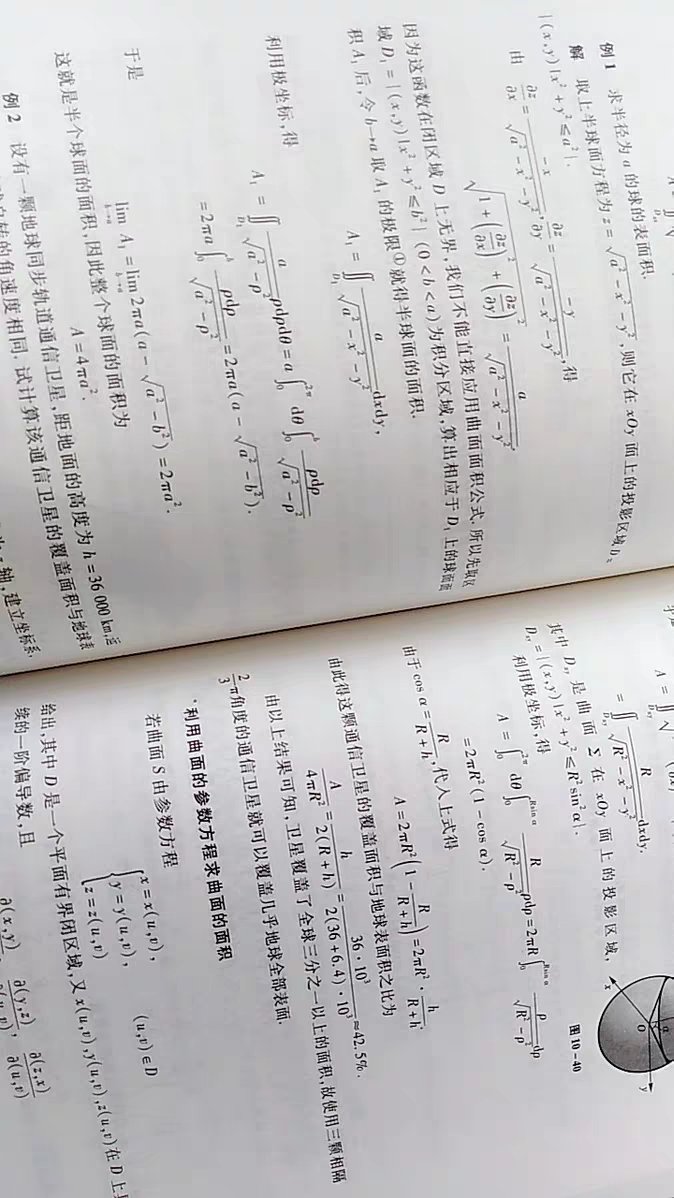 例 1 求半径为 a 的球的表面积.
解 取上半球面方程为 z = √(a² - x² - y²), 则它在 xOy 面上的投影区域 D =
{(x,y) | x² + y² ≤ a²}.
由 ∂z/∂x = -x/√(a² - x² - y²), ∂z/∂y = -y/√(a² - x² - y²), 得
√(1 + (∂z/∂x)² + (∂z/∂y)²) = a/√(a² - x² - y²).
因为这函数在闭区域 D 上无界, 我们不能直接应用曲面面积公式. 所以先取区
域 D₁ = {(x,y) | x² + y² ≤ b²} (0 < b < a) 为积分区域, 算出相应于 D₁ 上的球面面
积 A₁ 后, 令 b→a 取 A₁ 的极限①就得半球面的面积.
A₁ = ∬_{D₁} a/√(a² - x² - y²) dxdy,
利用极坐标, 得
A₁ = ∬_{D₁} a/√(a² - ρ²) ρdρdθ = a∫₀^{2π} dθ ∫₀^b ρdρ/√(a² - ρ²)
= 2πa∫₀^b ρdρ/√(a² - ρ²) = 2πa(a - √(a² - b²)).
于是
lim_{b→a} A₁ = lim_{b→a} 2πa(a - √(a² - b²)) = 2πa².
这就是半个球面的面积, 因此整个球面的面积为
A = 4πa².
例 2 设有一颗地球同步轨道通信卫星, 距地面的高度为 h = 36 000 km, 运
转的角速度相同. 试计算该通信卫星的覆盖面积与地球表
轴, 建立坐标系,
= ∬_{Dxy} R/√(R² - x² - y²) dxdy.
其中 Dxy 是曲面 Σ 在 xOy 面上的投影区域,
Dxy = {(x,y) | x² + y² ≤ R²sin²α}.
利用极坐标, 得
A = ∫₀^{2π} dθ ∫₀^{Rsin α} R/√(R² - ρ²) ρdρ = 2πR∫₀^{Rsin α} ρ/√(R² - ρ²) dρ
= 2πR²(1 - cos α).
x
O
α
y
图 10-40
由于 cos α = R/(R+h), 代入上式得
A = 2πR²(1 - R/(R+h)) = 2πR² · h/(R+h).
由此得这颗通信卫星的覆盖面积与地球表面积之比为
A/(4πR²) = h/(2(R+h)) = 36·10³/(2(36+6.4)·10³) ≈ 42.5%.
由以上结果可知, 卫星覆盖了全球三分之一以上的面积, 故使用三颗相隔
2/3 π角度的通信卫星就可以覆盖几乎地球全部表面.
*利用曲面的参数方程求曲面的面积
若曲面 S 由参数方程
{ x = x(u,v),
y = y(u,v), (u,v) ∈ D
z = z(u,v)
给出, 其中 D 是一个平面有界闭区域, 又 x(u,v), y(u,v), z(u,v) 在 D 上
续的一阶偏导数, 且
∂(x,y), ∂(y,z)/∂(u,v), ∂(z,x)/∂(u,v)